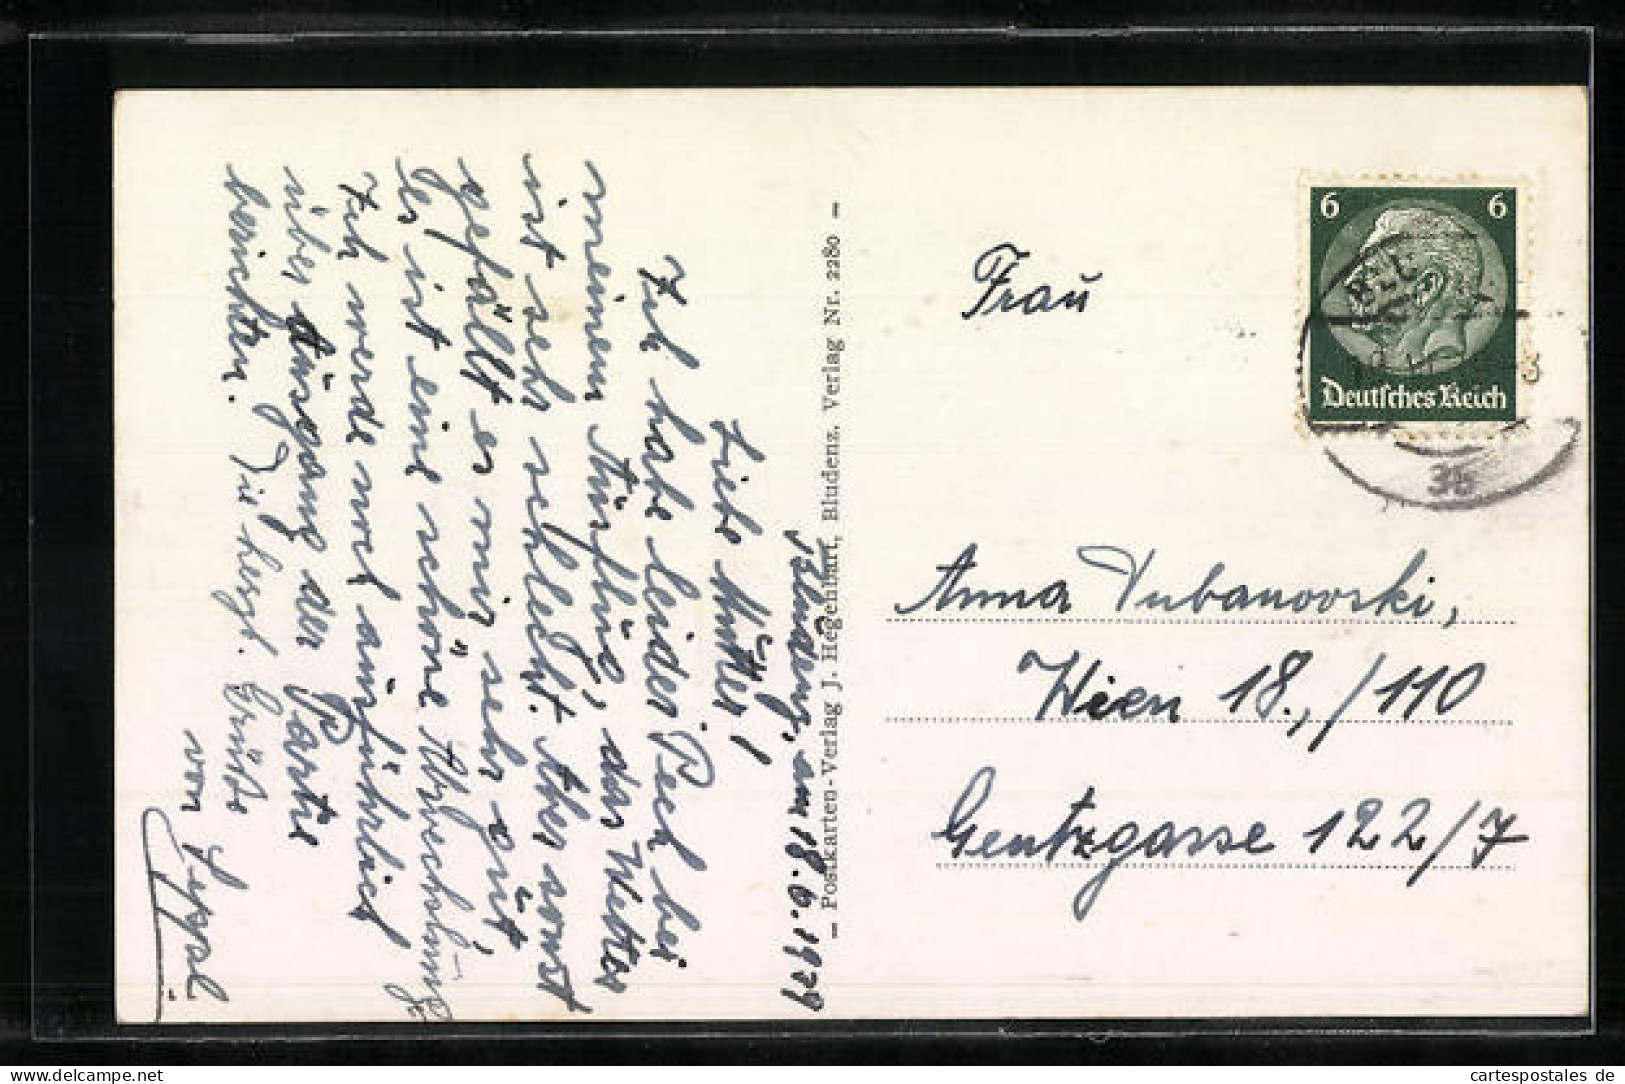 Bludenz, am 18.6.1939
Liebe Mutter!
Ich habe leider Pech bei
meinem Ausflug, das Wetter
ist sehr schlecht. Aber sonst
gefällt es mir sehr gut,
es ist eine schöne Abwechslung
Ich werde noch ausführlich
über Ausgang der Partie
berichten. Die herzl. Grüße
von
— Postkarten-Verlag J. Hegenbart, Bludenz. Verlag Nr. 2280 —
6 6
Deutsches Reich
3b
Frau
Anna
Wien 18., /110
Gentzgasse 122/7
cartespostales de